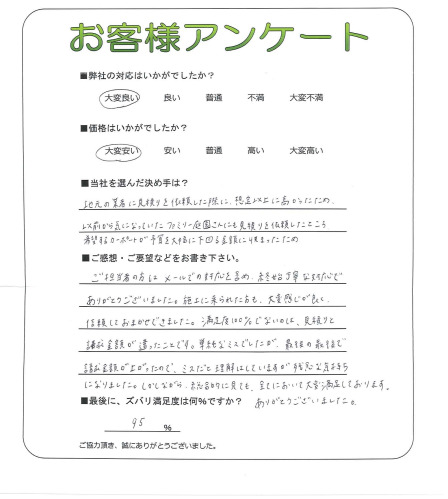 お客様アンケート
■弊社の対応はいかがでしたか?
大変良い 良い 普通 不満 大変不満
■価格はいかがでしたか?
大変安い 安い 普通 高い 大変高い
■当社を選んだ決め手は?
地元の業者に見積りを依頼した際に、想定以上に高かったため、
以前から気になっていたファミリー庭園さんにも見積りを依頼したところ
希望するカーポートが予算を大幅に下回る金額に収まったため
■ご感想・ご要望などをお書き下さい。
ご担当者の方はメールでの対応を含め、終始丁寧な対応で
ありがとうございました。施工に来られた方も、大変感じが良く、
信頼しておまかせできました。満足度100%でないのは、見積りと
請求金額が違ったことです。単純なミスでしたが、最後の最後で
請求金額が上がったので、ミスだと理解はしていますが残念な気持ち
になりました。しかしながら、総合的に見ても、全てにおいて大変満足しております。
■最後に、ズバリ満足度は何%ですか? ありがとうございました。
95 %
ご協力頂き、誠にありがとうございました。